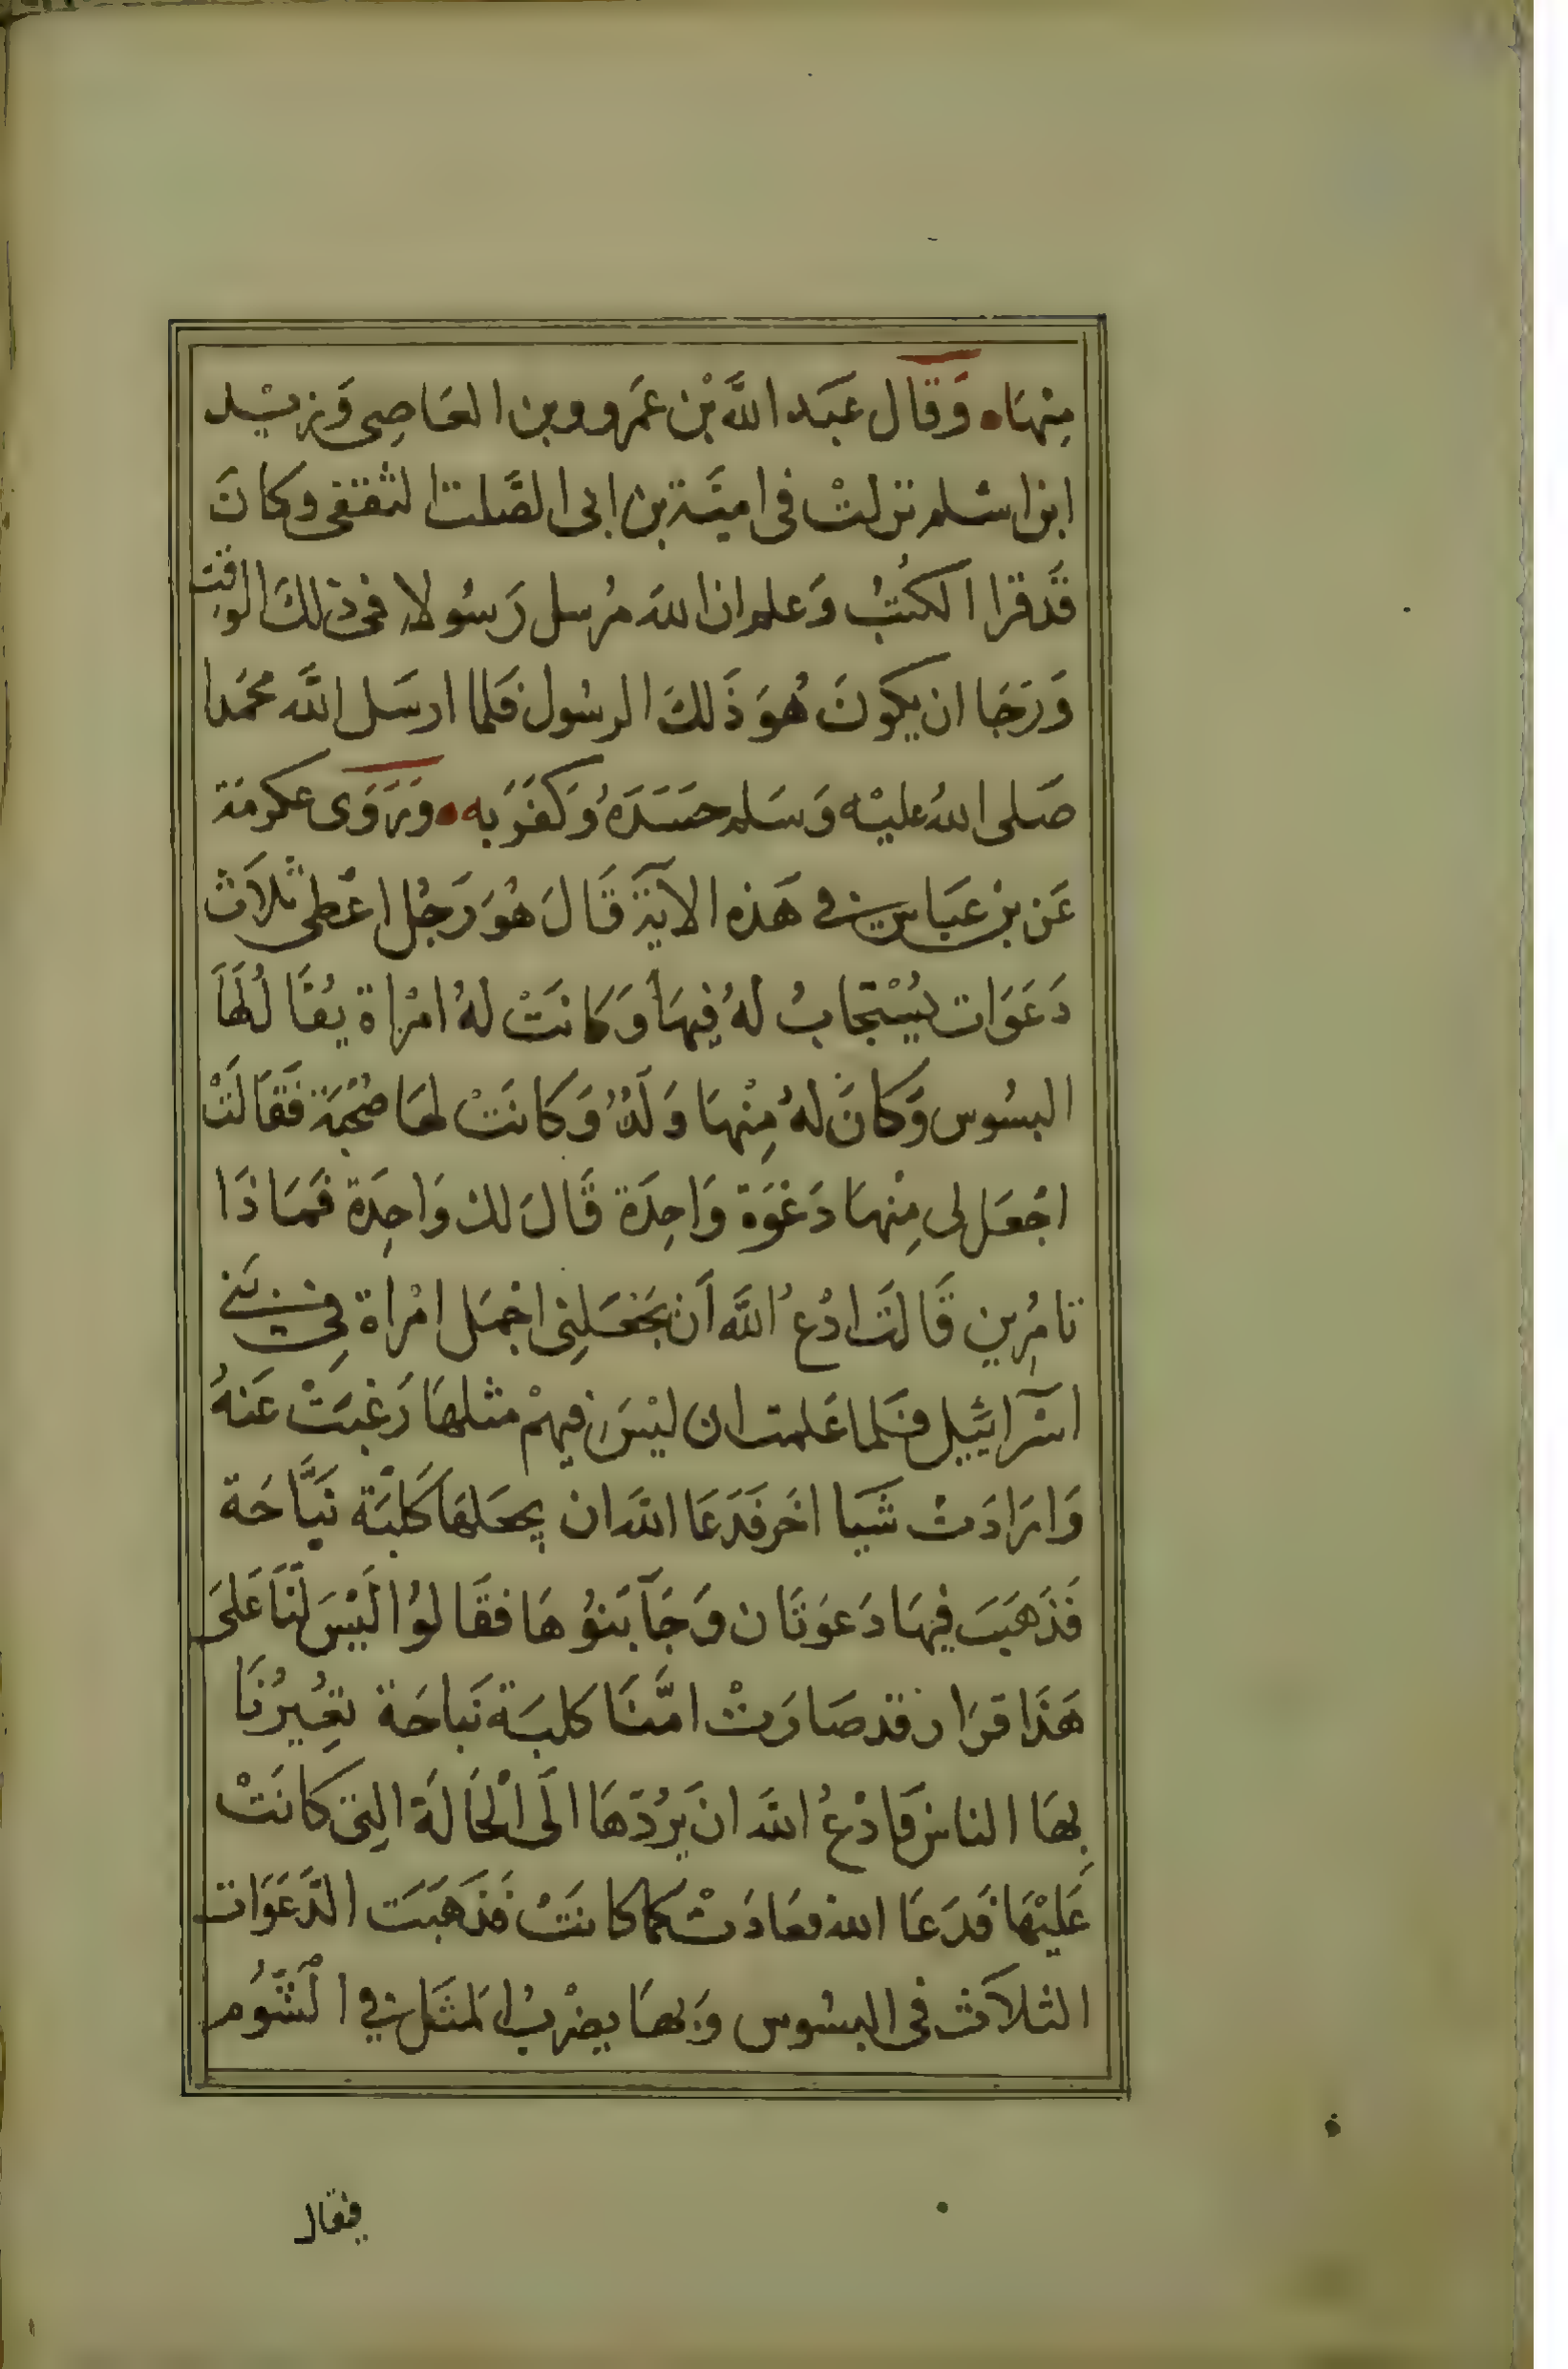 مِنْهَا وَقَالَ عَبَد اللَّه بْن عَمَرو وبن العَاصِى وَزيْد
ابن اسْلم نزلتْ فى اميَّة بن ابى الصَّلت الثقفى وكَانَ
قَدقرا الكُتُبُ وَعلم ان اللهَ مُرسل رَسُولا فى ذلكَ الوقت
وَرَجَا ان يكونَ هُوَ ذَلكَ الرسُول فَلما ارسَل اللَّه محَمدا
صَلى اللهُ عليْه وَسَلم حسَدَهُ وَكفَرَ به وَرَوَى عكرمَة
عَن بن عَباس فى هَذه الآيَة قَالَ هُوَ رَجُل اعْطى ثلاَث
دَعَوَات يُسْتَجَابُ لهُ فِيهَا وَكَانَتْ لهُ امْرَاة يُقَالُ لُهَا
البسُوس وَكانَ لهُ مِنْهَا وَلَدُ وَكانَتْ لهَا صُحْبَة فَقَالَتْ
اجْعَل لى مِنْهَا دَعْوَة وَاحِدَة قَالَ لك وَاحِدَة فَمَاذَا
تامُرِين قَالتَ ادْعُ اللَّه اَن يَجْعَلنِى اجْمَل امْرَاة فِى بَنى
اسْرَآئيل فلما عَلمت ان ليْسَ فيهِمْ مثلهَا رَغبَتْ عَنهُ
وَارَادَتْ شَيَا اخَر فَدَعَا اللهَ ان يجعَلهَا كَلبَة نَبَّاحَة
فَذَهَبَت فِيهَا دَعوَتَان وَجَآ بَنوُهَا فقَالوُا لَيْسَ لَنَا عَلى
هَذَا قرَار قد صَارَتْ امَّنَا كلبَة نَباحَة تعُيِرُنَا
بِهَا الناس فَادْعُ اللهَ ان يَرُدّهَا الَى الْحَالَة التِى كَانَتْ
عَليْهَا فَدَعَا الله فعَادَتْ كما كانَتْ فَذَهَبَت الدَّعَوَات
الثلاَث فى البسُوس وَبهَا يضْربُ المثَل فى الشُّوم
فيقال